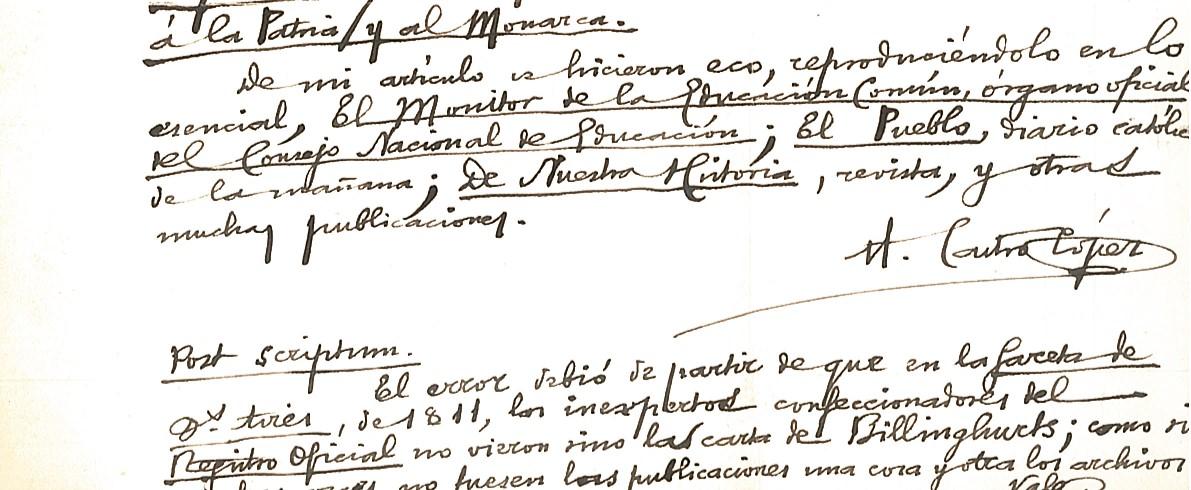 á la Patria/y al Monarca.
De mi artículo se hicieron eco, reproduciéndolo en lo
esencial, El Monitor de la Educación Común, órgano oficial
del Consejo Nacional de Educación; El Pueblo, diario católic
de la mañana; De Nuestra Historia, revista, y otras
muchas publicaciones.
M. Castro López
Post scriptum.
El error debió de partir de que en la Gaceta de
Bs. Aires, de 1811, los inexpertos confeccionadores del
Registro Oficial no vieron sino las carta de Billinghurts; como si
no fuesen las publicaciones una cosa y otra los archivos